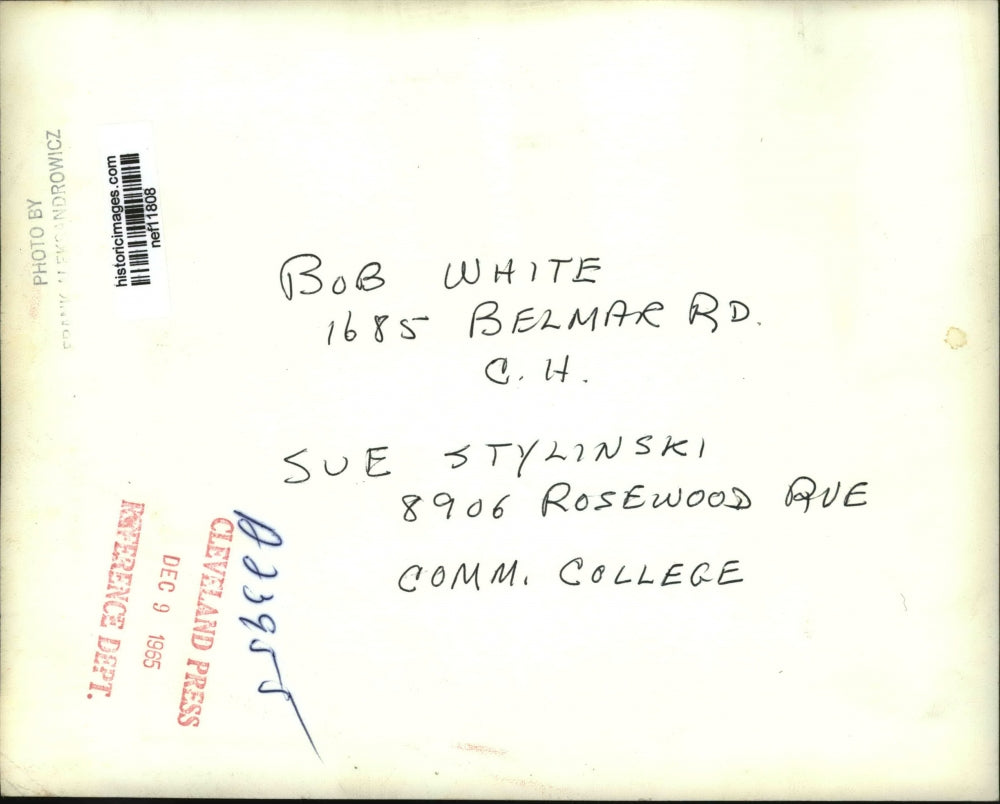 PHOTO BY
historicimages.com
nef11808
BOB WHITE
1685 BELMAR RD.
C. H.
SUE STYLINSKI
8906 ROSEWOOD AVE
COMM. COLLEGE
CLEVELAND PRESS
DEC 9 1965
REFERENCE DEPT.